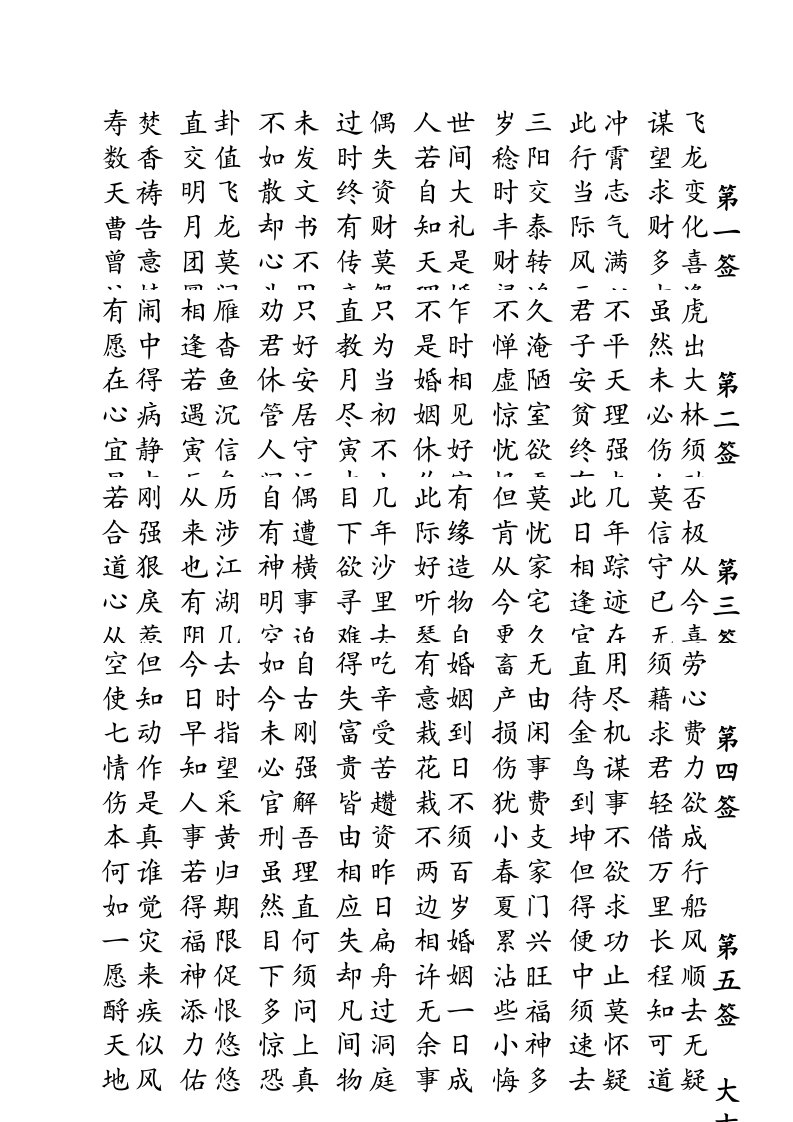 第一签
飞龙变化喜
谋望求财多
冲霄志气满
此行当际风
三阳交泰转
岁稔时丰财
世间大礼是
人若自知天
偶失资财莫
过时终有传
未发文书不
不如散却心
卦值飞龙莫
直交明月团
焚香祷告意
寿数天曹曾
第二签
虎出大林须
虽然未必伤
不平天理强
君子安贫终
久淹陋室欲
不惮虚惊忧
乍时相见好
不是婚姻休
只为当初不
直教月尽寅
只好安居守
劝君休管人
雁杳鱼沉信
相逢若遇寅
闹中得病静
有愿在心宜
第三签
否极从今喜
莫信守已无
几年踪迹在
此日相逢官
莫忧家宅久
但肯从今更
有缘造物自
此际好听琴
几年沙里去
目下欲寻难
偶遭横事迫
自有神明空
历涉江湖几
从来也有阴
刚强狠戾惹
若合道心从
第四签
劳心费力欲成
须藉求君轻借
用尽机谋事不
直待金鸟到坤
无由闲事费支
畜产损伤犹小
婚姻到日不须
有意栽花栽不
吃辛受苦趱资
得失富贵皆由
自古刚强解吾
如今未必官刑
去时指望采黄
今日早知人事
但知动作是真
空使七情伤本
第五签 大
行船风顺去无疑
万里长程知可道
欲求功止莫怀疑
但得便中须速去
家门兴旺福神多
春夏累沾些小悔
百岁婚姻一日成
两边相许无余事
昨日扁舟过洞庭
相应失却凡间物
理直何须问上真
虽然目下多惊恐
归期限促恨悠悠
若得福神添力佑
谁觉灾来疾似风
何如一愿酹天地